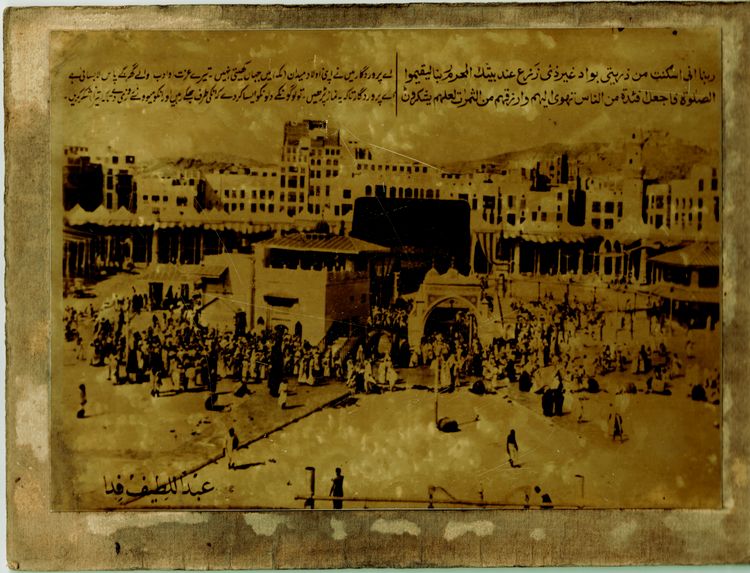 ربنا انی اسکنت من ذریتی بواد غیر ذی زرع عند بیتك المحرم ربنا لیقیموا
الصلوة فاجعل افئدة من الناس تهوی الیهم وارزقهم من الثمرات لعلهم یشکرون
اے پروردگار میں نے اپنی اولاد میدان (مکہ) میں جہاں کھیتی نہیں۔ تیرے عزت و ادب والے گھر کے پاس لا بسائی ہے
اے پروردگار تاکہ یہ نماز پڑھیں۔ تو لوگوں کے دلونکو ایسا کردے کہ انکی طرف جھکے رہیں اور انکو میوونسے روزی دے
عبداللطیف فدا